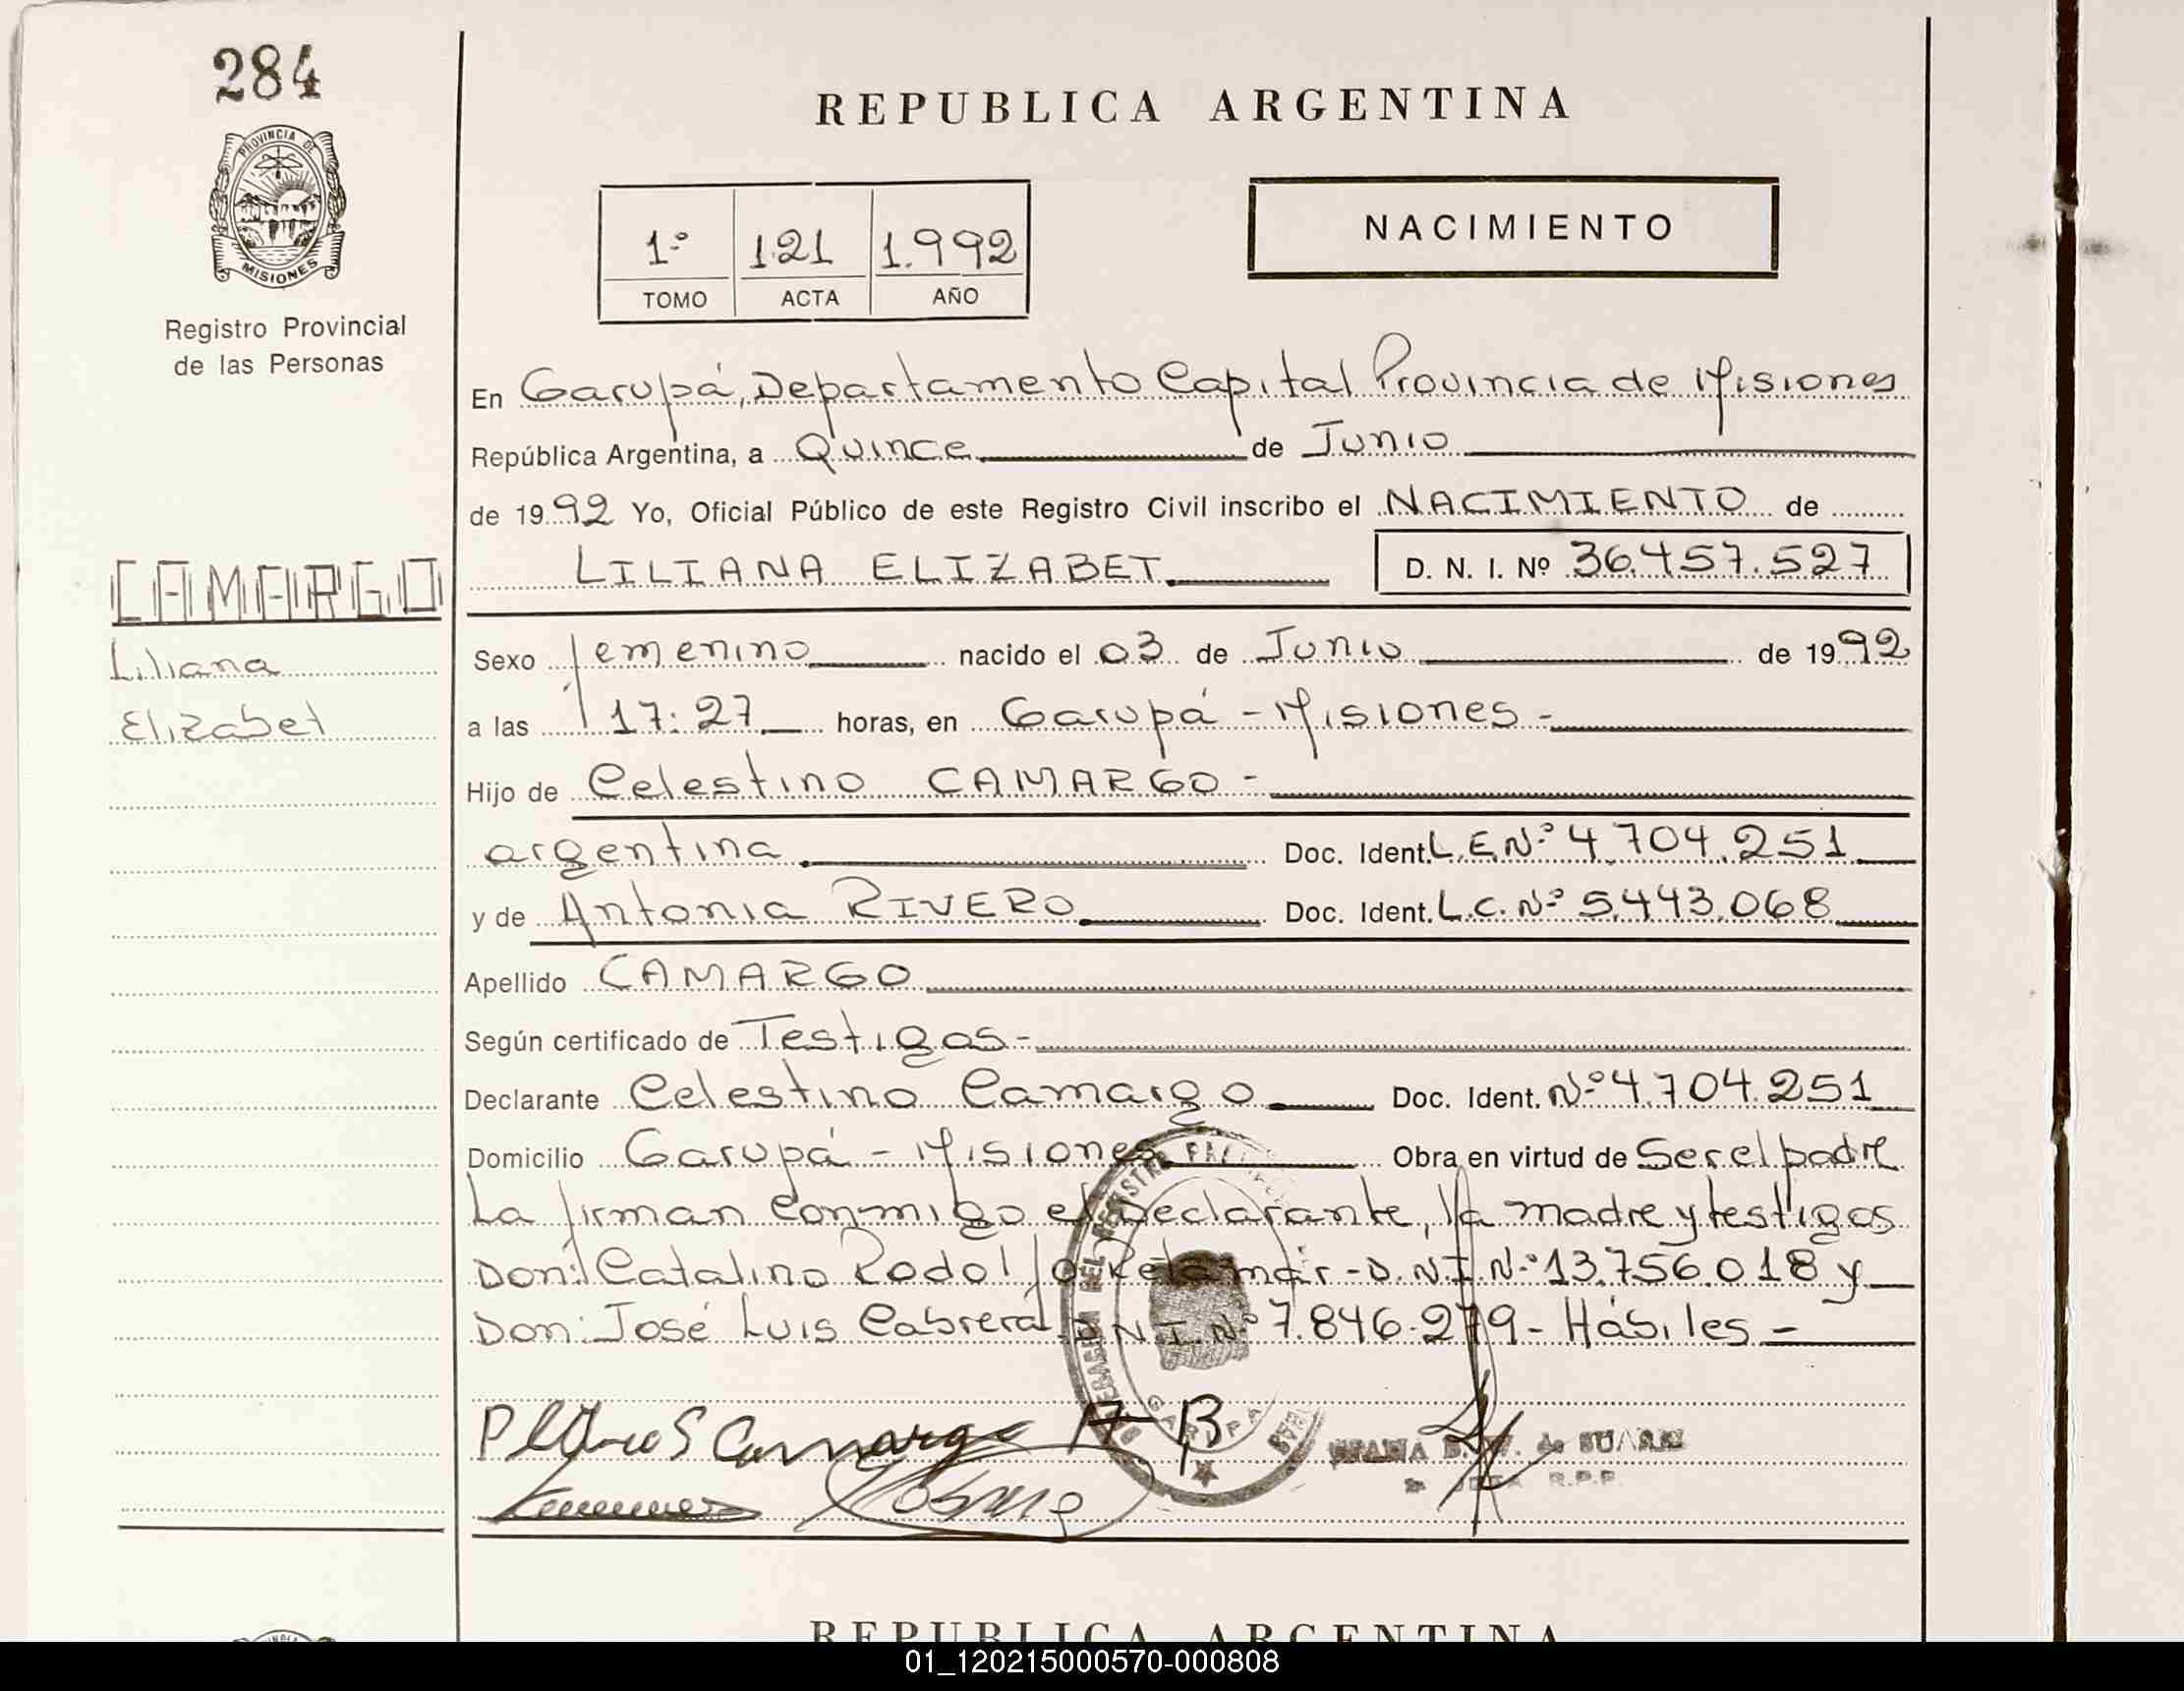 284
REPUBLICA ARGENTINA
PROVINCIA DE
MISIONES
Registro Provincial
de las Personas
1º 121 1.992
TOMO ACTA AÑO
NACIMIENTO
En Garupá, Departamento Capital Provincia de Misiones
República Argentina, a Quince de Junio
de 1992 Yo, Oficial Público de este Registro Civil inscribo el NACIMIENTO de
LILIANA ELIZABET D. N. I. Nº 36.457.527
CAMARGO
Liliana
Elizabet
Sexo femenino nacido el 03 de Junio de 1992
a las 17:27 horas, en Garupá - Misiones -
Hijo de Celestino CAMARGO -
argentina Doc. Ident. L.E.Nº 4.704.251
y de Antonia RIVERO Doc. Ident. L.C. Nº 5.443.068
Apellido CAMARGO
Según certificado de Testigos -
Declarante Celestino Camargo Doc. Ident. Nº 4.704.251
Domicilio Garupá - Misiones Obra en virtud de Ser el padre
La firman conmigo el Declarante, la madre y testigos
Don: Catalino Rodolfo Retamar - D.N.I.Nº 13.756.018 y
Don: José Luis Cabrera D.N.I.Nº 7.846.279 - Hábiles -
Camargo A B
de SUAREZ
R.P.P.
REPUBLICA ARGENTINA
01_120215000570-000808